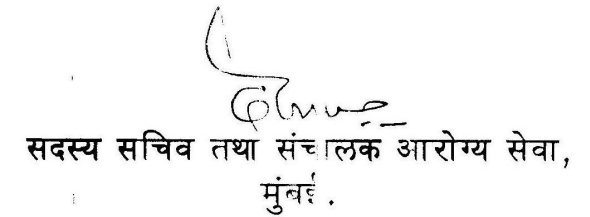 सदस्य सचिव तथा संचालक आरोग्य सेवा,
मुंबई.